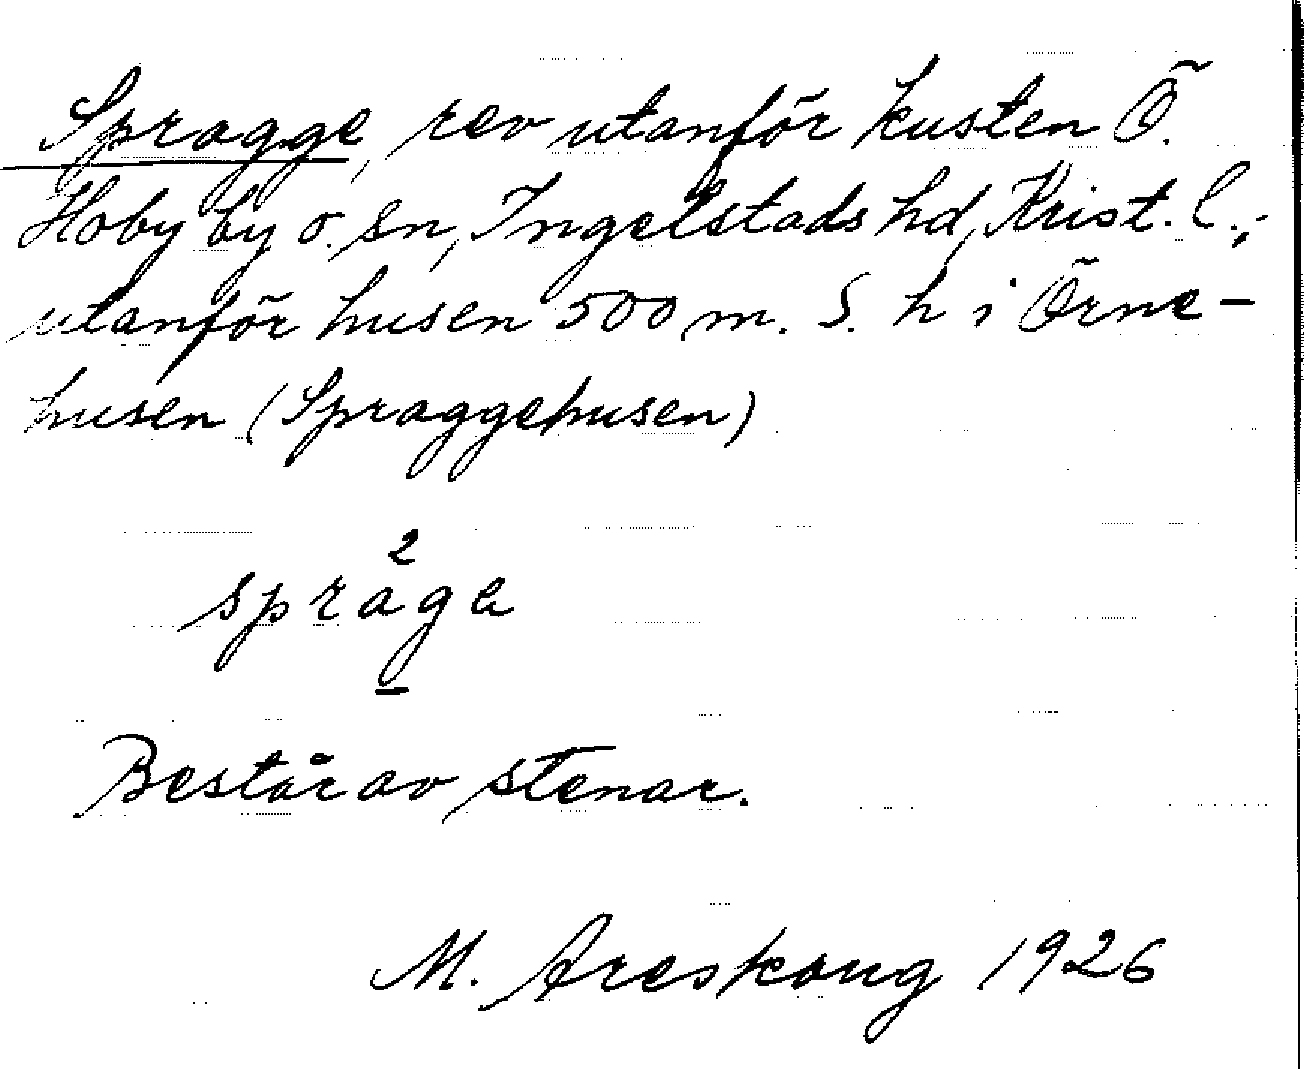 Spragge, rev utanför kusten Ö.
Hoby by o. sn, Ingelstads hd, Krist. l.;
utanför husen 500 m. S. h i Örne-
husen (Spraggehusen)
2
sprage
Består av stenar.
M. Areskoug 1926